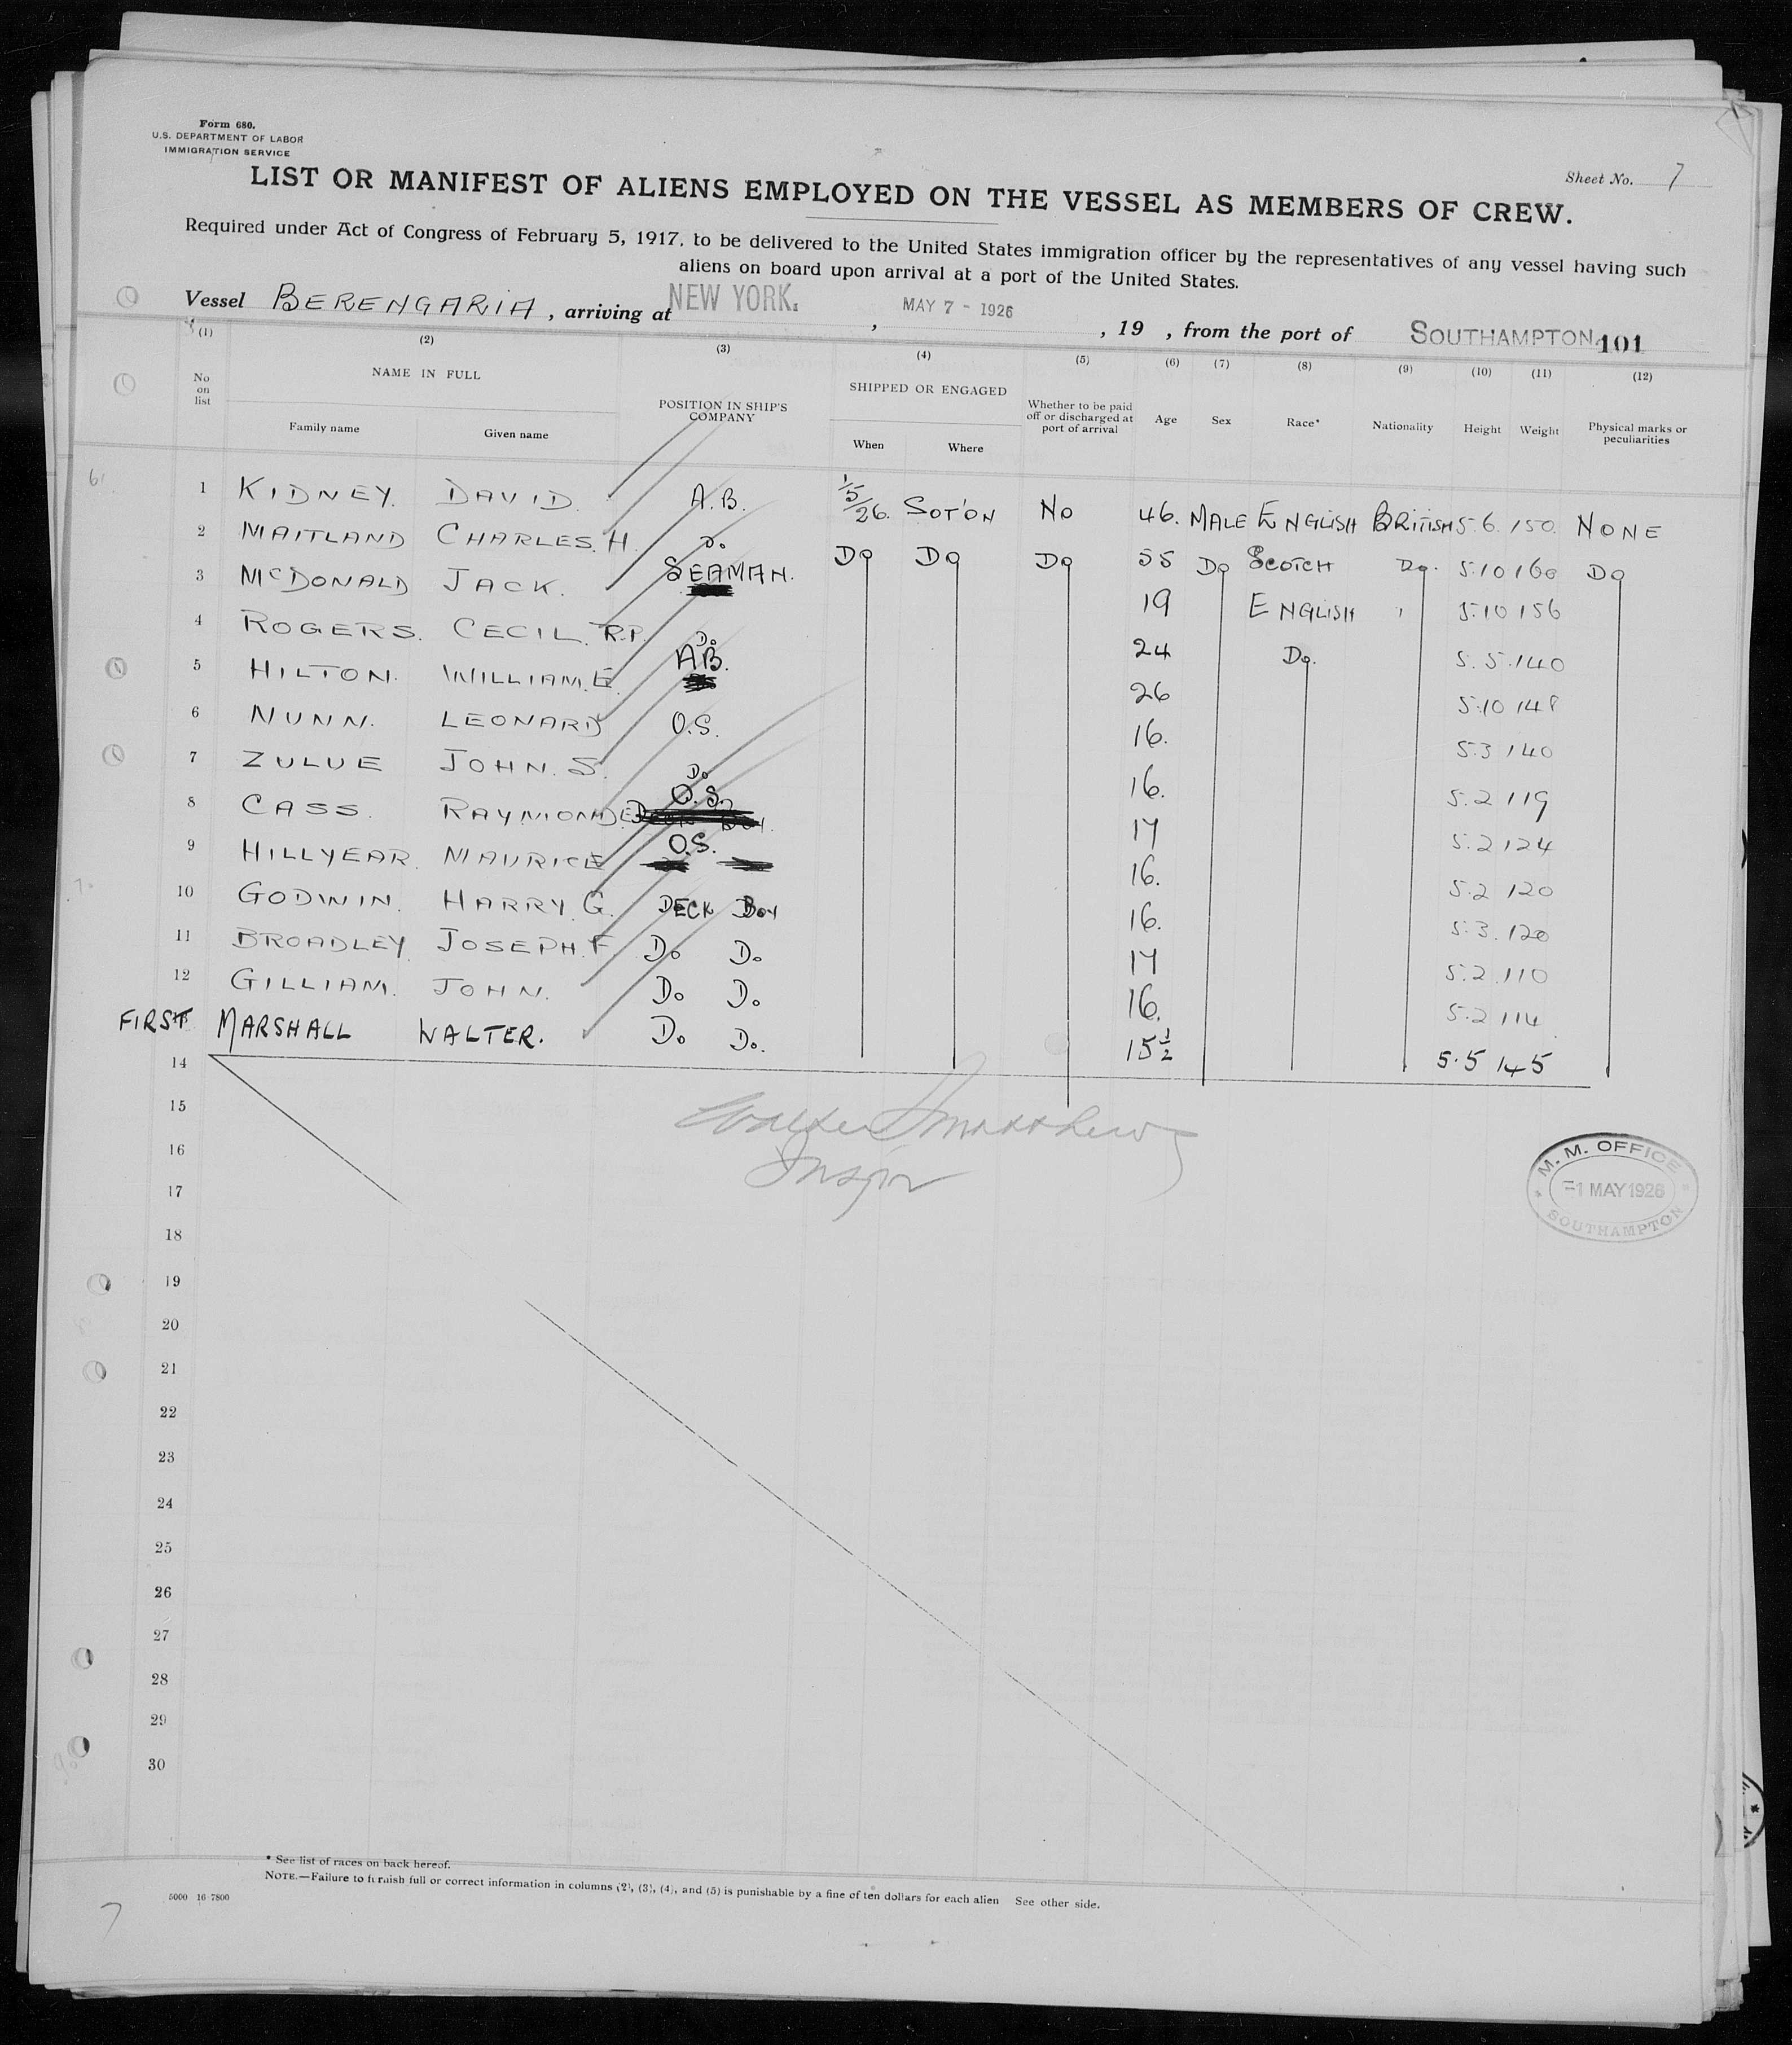 Form 680.
U.S. DEPARTMENT OF LABOR
IMMIGRATION SERVICE
Sheet No. 7
LIST OR MANIFEST OF ALIENS EMPLOYED ON THE VESSEL AS MEMBERS OF CREW.
Required under Act of Congress of February 5, 1917, to be delivered to the United States immigration officer by the representatives of any vessel having such
aliens on board upon arrival at a port of the United States.
Vessel BERENGARIA, arriving at NEW YORK, MAY 7 - 1926, 19 , from the port of SOUTHAMPTON 101
(1) (2) (3) (4) (5) (6) (7) (8) (9) (10) (11) (12)
No on list NAME IN FULL POSITION IN SHIP'S COMPANY SHIPPED OR ENGAGED Whether to be paid off or discharged at port of arrival Age Sex Race* Nationality Height Weight Physical marks or peculiarities
Family name Given name When Where
1 KIDNEY. DAVID. A.B. 1/5/26. SOT'ON NO 46. MALE ENGLISH BRITISH 5.6. 150. NONE
2 MAITLAND CHARLES. H. Do Do Do Do 55 Do SCOTCH Do. 5.10 160 Do
3 McDONALD JACK. SEAMAN. 19 ENGLISH 5.10 156
4 ROGERS. CECIL. R.P. Do 24 Do. 5.5.140
5 HILTON. WILLIAM. E. A.B. 26 5.10 148
6 NUNN. LEONARD O.S. 16. 5.3 140
7 ZULUE JOHN. S. Do 16. 5.2 119
8 CASS. RAYMOND E. O.S. 17 5.2 124
9 HILLYEAR. MAURICE O.S. 16. 5.2 120
10 GODWIN. HARRY. G. DECK BOY 16. 5.3. 120
11 BROADLEY JOSEPH. F. Do Do 17 5.2.110
12 GILLIAM. JOHN. Do Do 16. 5.2 114
FIRST MARSHALL WALTER. Do Do. 15½ 5.5 145
14
15
16
17
18
19
20
21
22
23
24
25
26
27
28
29
30
Walter J Matthews
Inspr
M. M. OFFICE
1 MAY 1926
SOUTHAMPTON
* See list of races on back hereof.
NOTE.—Failure to furnish full or correct information in columns (2), (3), (4), and (5) is punishable by a fine of ten dollars for each alien See other side.
5000 16-7800
7